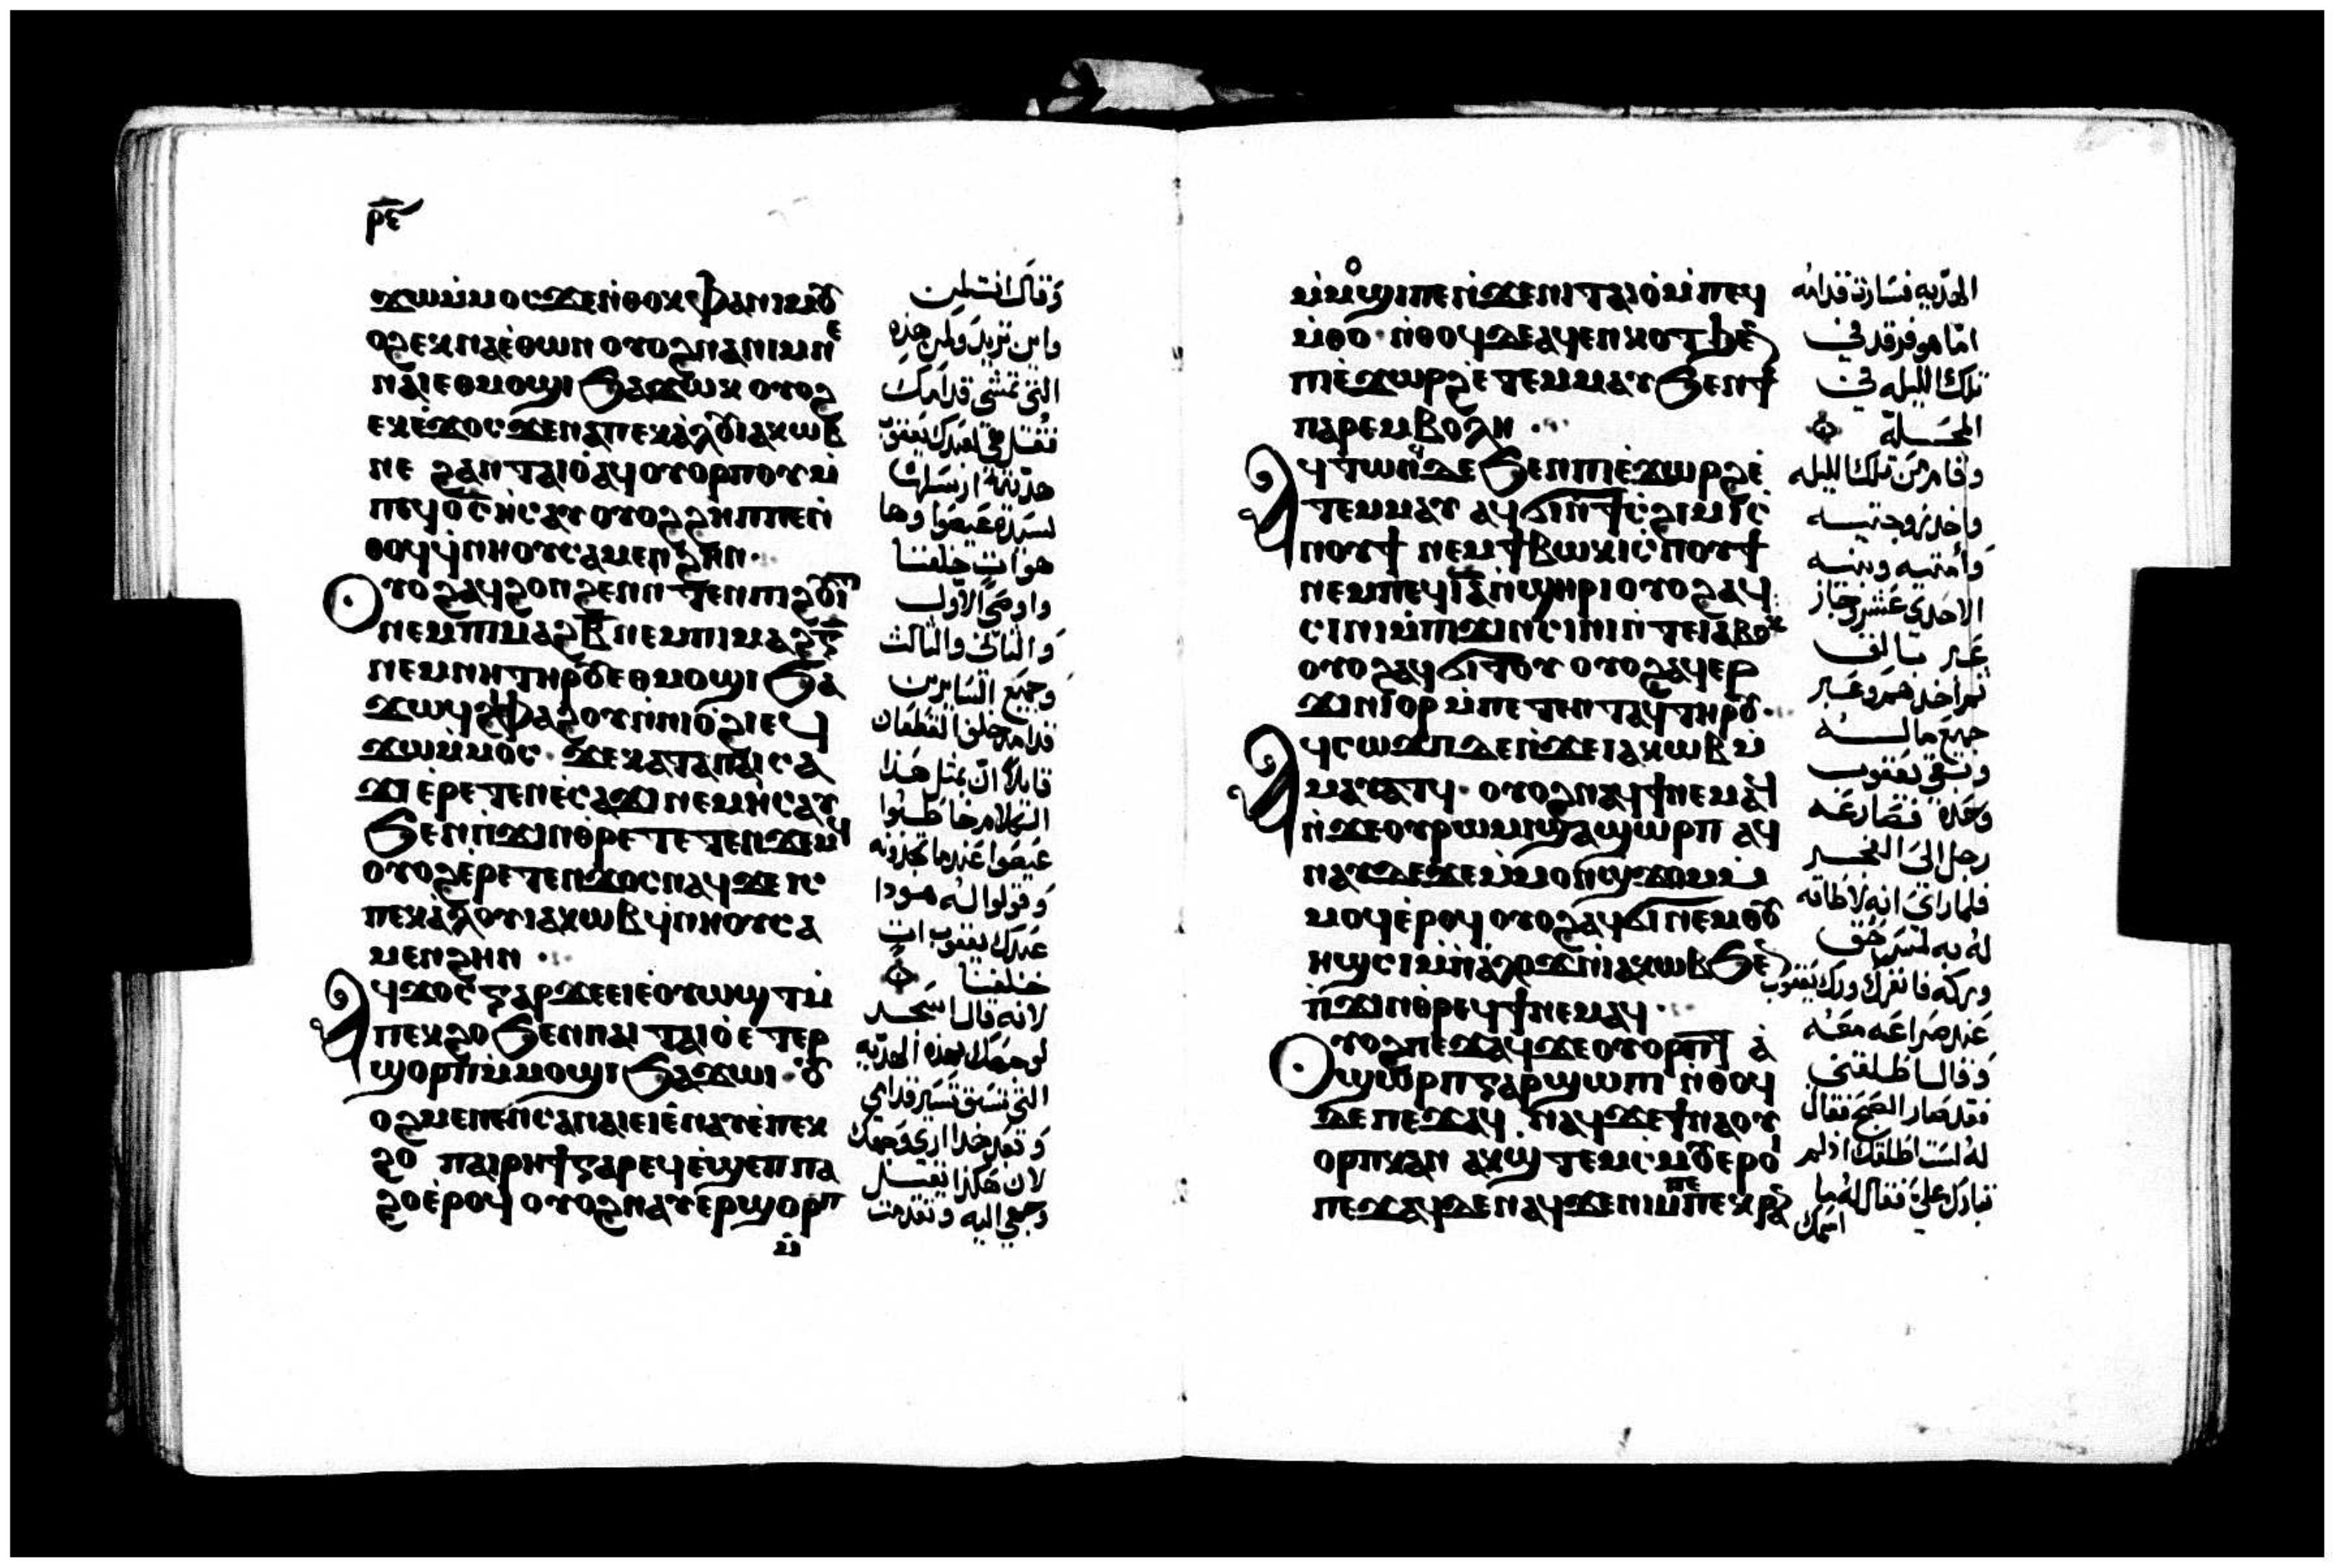 ⲣⲉ
ϫⲱⲙⲙⲟⲥ ϫⲉ ⲛⲑⲟⲕ ⲫⲁ ⲛⲓⲙ ⲟⲩ
ⲟϩ ⲉⲕⲛⲁⲉ ⲑⲱⲛ ⲟⲩⲟϩ ⲛⲁ ⲛⲓⲙ ⲛⲉ
ⲛⲁⲓ ⲉⲑⲙⲟϣⲓ ϧⲁϫⲱⲕ ⲟⲩⲟϩ
ⲉⲕⲉϫⲟⲥ ϫⲉ ⲛⲁ ⲡⲉⲕⲁⲗⲟⲩ ⲓⲁⲕⲱⲃ
ⲛⲉ ϩⲁⲛⲧⲁⲓⲟ ⲁϥⲟⲩⲟⲣⲡⲟⲩ ⲙ
ⲡⲉϥⲟⲥ ⲏⲥⲁⲩ ⲟⲩⲟϩ ϩⲏⲡⲡⲉ ⲛ
ⲑⲟϥ ϥⲛⲏⲟⲩ ⲥⲁⲙⲉⲛϩⲏⲛ
ⲟⲩⲟϩ ⲁϥϩⲟⲛϩⲉⲛ ⲛⲧⲉⲛ ⲡⲓϩⲟⲩⲓⲧ
ⲛⲉⲙ ⲡⲓⲙⲁϩⲃ ⲛⲉⲙ ⲡⲓⲙⲁϩⲅ
ⲛⲉⲙ ⲛⲏ ⲧⲏⲣⲟⲩ ⲉⲑⲙⲟϣⲓ ϧⲁ
ϫⲱϥ ⲫⲁϩⲟⲩ ⲛⲛⲓⲟϩⲓ ⲉϥ
ϫⲱⲙⲙⲟⲥ ϫⲉ ⲕⲁⲧⲁ ⲡⲁⲓⲥⲁ
ϫⲓ ⲉⲣⲉⲧⲉⲛⲉⲥⲁϫⲓ ⲛⲉⲙ ⲏⲥⲁⲩ
ϧⲉⲛ ⲡϫⲓⲛⲑⲣⲉⲧⲉⲧⲉⲛϫⲉⲙϥ
ⲟⲩⲟϩ ⲉⲣⲉⲧⲉⲛϫⲟⲥ ⲛⲁϥ ϫⲉ ⲓⲥ
ⲡⲉⲕⲁⲗⲟⲩ ⲓⲁⲕⲱⲃ ϥⲛⲏⲟⲩ ⲥⲁ
ⲙⲉⲛϩⲏⲛ
ⲁϥϫⲟⲥ ⲅⲁⲣ ϫⲉ ⲉⲓⲉⲟⲩⲱϣⲧ ⲙ
ⲡⲉⲕϩⲟ ϧⲉⲛ ⲡⲁⲓⲧⲁⲓⲟ ⲉⲧⲉⲣ
ϣⲟⲣⲡ ⲙⲙⲟϣⲓ ϧⲁϫⲱⲓ ⲟⲩ
ⲟϩ ⲙⲉⲛⲉⲛⲥⲁ ⲛⲁⲓ ⲉⲓⲉⲛⲁⲩ ⲉⲡⲉⲕ
ϩⲟ ⲡⲁⲓⲣⲏϯ ⲅⲁⲣ ⲉϥⲉϣⲉⲡ ⲡⲁ
ϩⲟ ⲉⲣⲟϥ ⲟⲩⲟϩ ⲛⲁⲩⲉⲣϣⲟⲣⲡ
ⲙ
وقال انت لمن
واين تريد ولمن هذه
التي تمشي قدامك
فتقل هي لعبدك يعقوب
هديته ارسلها
لسيده عيصوا وها
هوات خلفنا
واوصي الاول
والثاني والثالث
وجميع السايرين
قدامه خلف القطعان
قايلا ان مثل هذا
الكلام خاطبوا
عيصوا عندما تجدونه
وقولوا له هودا
عبدك يعقوب ات
خلفنا
لانه قال اسجد
لوجهك بهذه الهديه
التي تسبق تسير قدامي
وبعد هذا اري وجهك
لان هكذا يقبل
وجهي اليه وتقدمت
ⲙⲙⲟϣⲓ ⲡⲉ ⲛϫⲉ ⲛⲓⲧⲁⲓⲟ ⲙⲡⲉϥ
ⲙⲑⲟ ⲛⲑⲟϥ ⲇⲉ ⲁϥⲉⲛⲕⲟⲧ ϧⲉⲛ
ⲡⲓⲉϫⲱⲣϩ ⲉⲧⲉⲙⲙⲁⲩ ϧⲉⲛ ϯ
ⲡⲁⲣⲉⲙⲃⲟⲗⲏ
ⲁϥⲧⲱⲛϥ ⲇⲉ ϧⲉⲛ ⲡⲓⲉϫⲱⲣϩ ⲉ
ⲧⲉⲙⲙⲁⲩ ⲁϥϭⲓ ⲛϯⲥϩⲓⲙⲓ ⲥ
ⲛⲟⲩϯ ⲛⲉⲙ ϯⲃⲱⲕⲓ ⲥⲛⲟⲩϯ
ⲛⲉⲙ ⲡⲉϥⲓⲁ ⲛϣⲏⲣⲓ ⲟⲩⲟϩ ⲁϥ
ⲥⲓⲛⲓ ⲙⲡⲓϫⲓⲛⲥⲓⲛⲓ ⲛⲧⲉ ⲓⲁⲃⲟⲕ
ⲟⲩⲟϩ ⲁϥϭⲓⲧⲟⲩ ⲟⲩⲟϩ ⲁϥⲉⲣ
ϫⲓⲛⲓⲟⲣ ⲙⲡⲉⲧⲉⲛⲧⲁϥ ⲧⲏⲣⲟⲩ
ⲁϥⲥⲱϫⲡ ⲇⲉ ⲛϫⲉ ⲓⲁⲕⲱⲃ ⲙ
ⲙⲁⲩⲁⲧϥ ⲟⲩⲟϩ ⲛⲁϥϯ ⲛⲉⲙⲁϥ
ⲛϫⲉ ⲟⲩⲣⲱⲙⲓ ϣⲁ ϣⲱⲣⲡ ⲁϥ
ⲛⲁⲩ ⲇⲉ ϫⲉ ⲙⲙⲟⲛ ϣϫⲟⲙ ⲙ
ⲙⲟϥ ⲉⲣⲟϥ ⲟⲩⲟϩ ⲁϥϭⲓ ⲛⲉⲙ ⲑⲟⲩ
ⲏϣⲥⲓ ⲙⲡⲁⲗⲟϫ ⲛⲓⲁⲕⲱⲃ ϧⲉⲛ
ⲡϫⲓⲛⲑⲣⲉϥϯ ⲛⲉⲙⲁϥ
ⲟⲩⲟϩ ⲡⲉϫⲁϥ ϫⲉ ⲟⲩⲟⲣⲡⲧ ⲁ
ϣⲱⲣⲡ ⲅⲁⲣ ϣⲱⲡⲓ ⲛⲑⲟϥ
ⲇⲉ ⲡⲉϫⲁϥ ⲛⲁϥ ϫⲉ ϯⲛⲁⲟⲩ
ⲟⲣⲡⲕ ⲁⲛ ⲁⲕϣⲧⲉⲙⲥⲙⲟⲩ ⲉⲣⲟⲓ
ⲡⲉϫⲁϥ ⲇⲉ ⲛⲁϥ ϫⲉ ⲛⲓⲙ ⲡⲉ ⲡⲉⲕⲣⲁⲛ
الهديه فسارت قدامه
اما هو فرقد في
تلك الليله في
المحله
وقام من تلك الليله
واخد زوجتيه
وأمتيه وبنيه
الاحدي عشر وجاز
عبر يبالق
ثم أخدهم وعبر
جميع ماله
وبقي يعقوب
وحده فصارعه
رجل الي الفجر
فلما راي انه لا طاقه
له به لمس حق
وركه فانفرك ورك يعقوب
عند صراعه معه
وقال اطلقني
فقد صار الصبح فقال
له لست اطلقك اذ لم
تبارك علي فقال له ما
اسمك